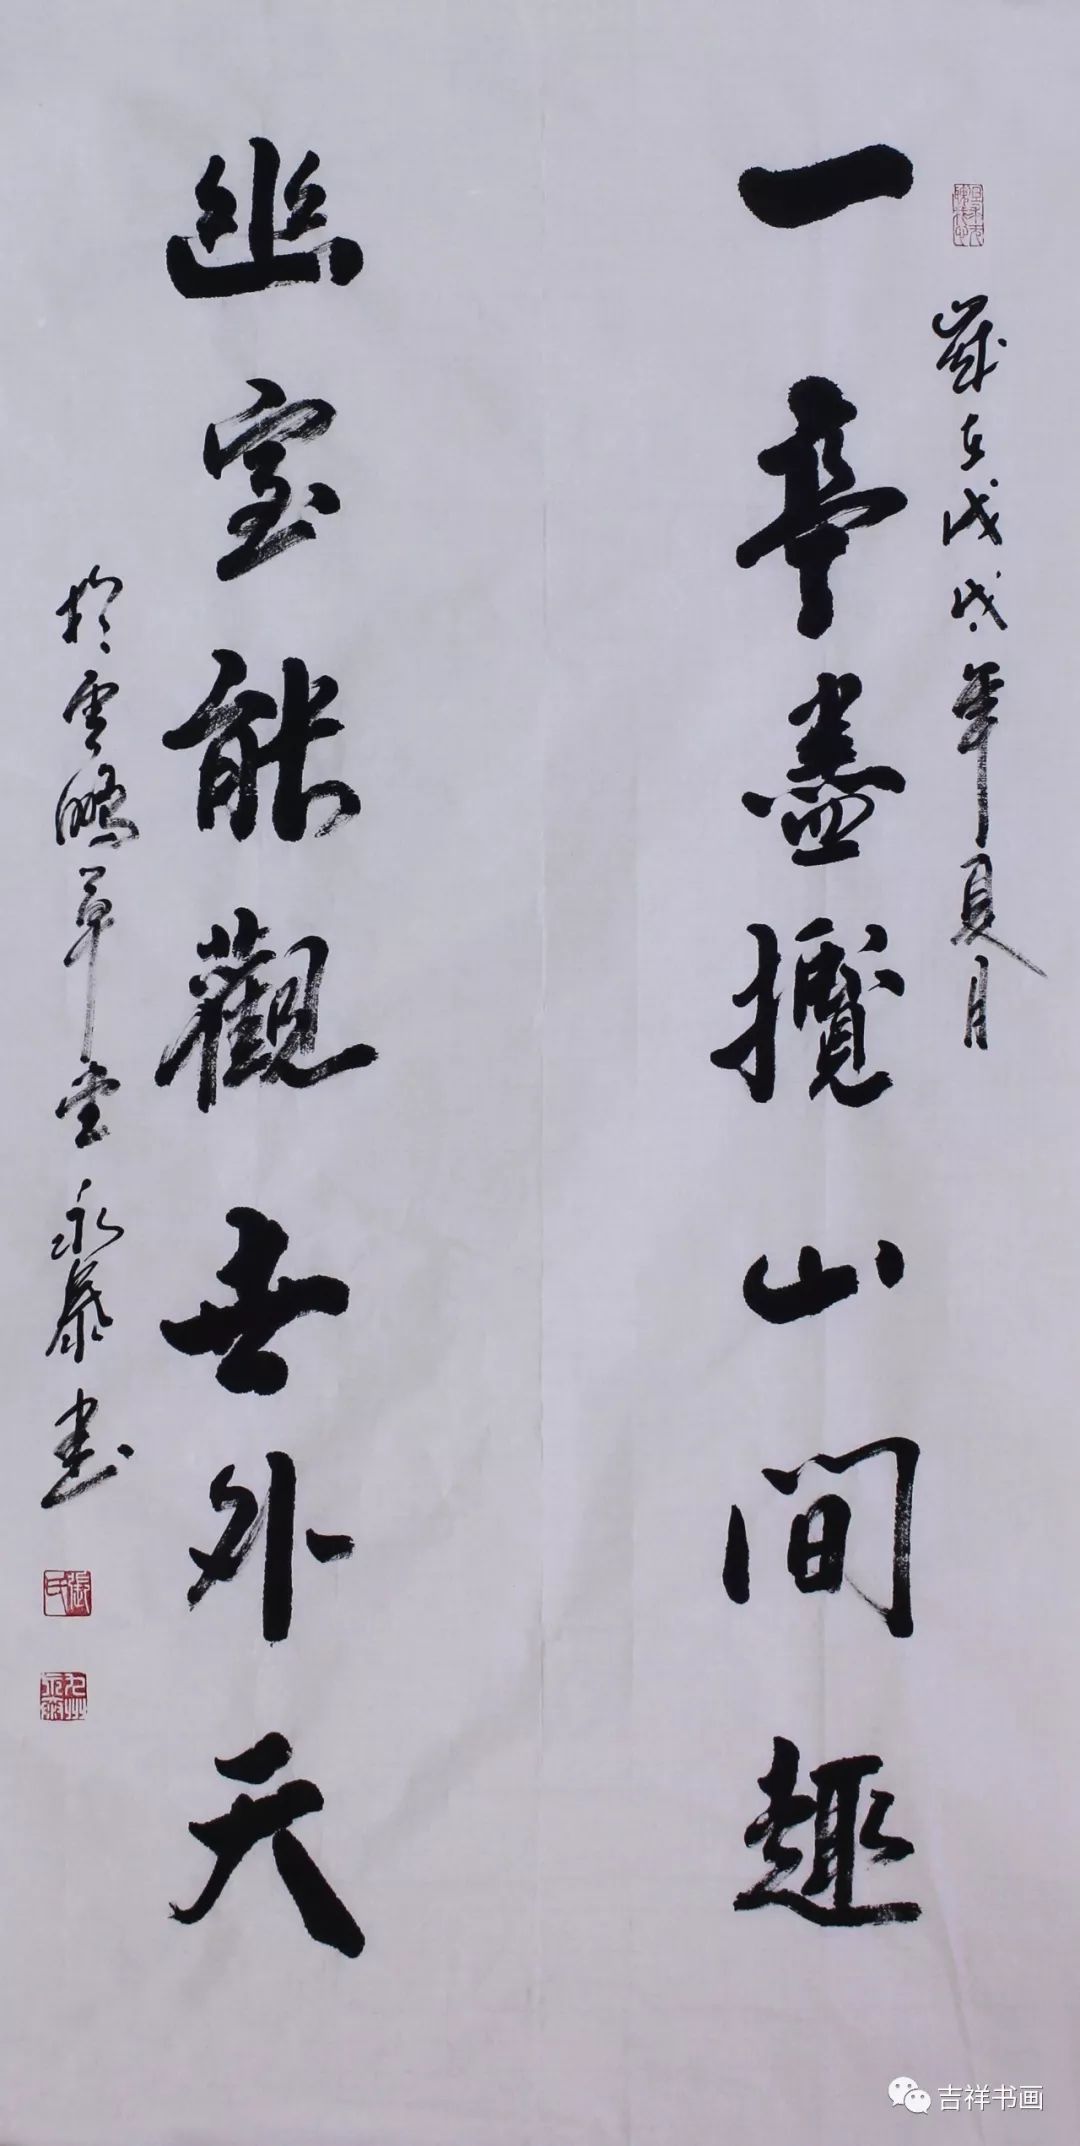 歲在戊戌年夏月
一亭盡攬山間趣
幽室能觀世外天
於雲鵬草堂永泰書
張氏
吉祥书画